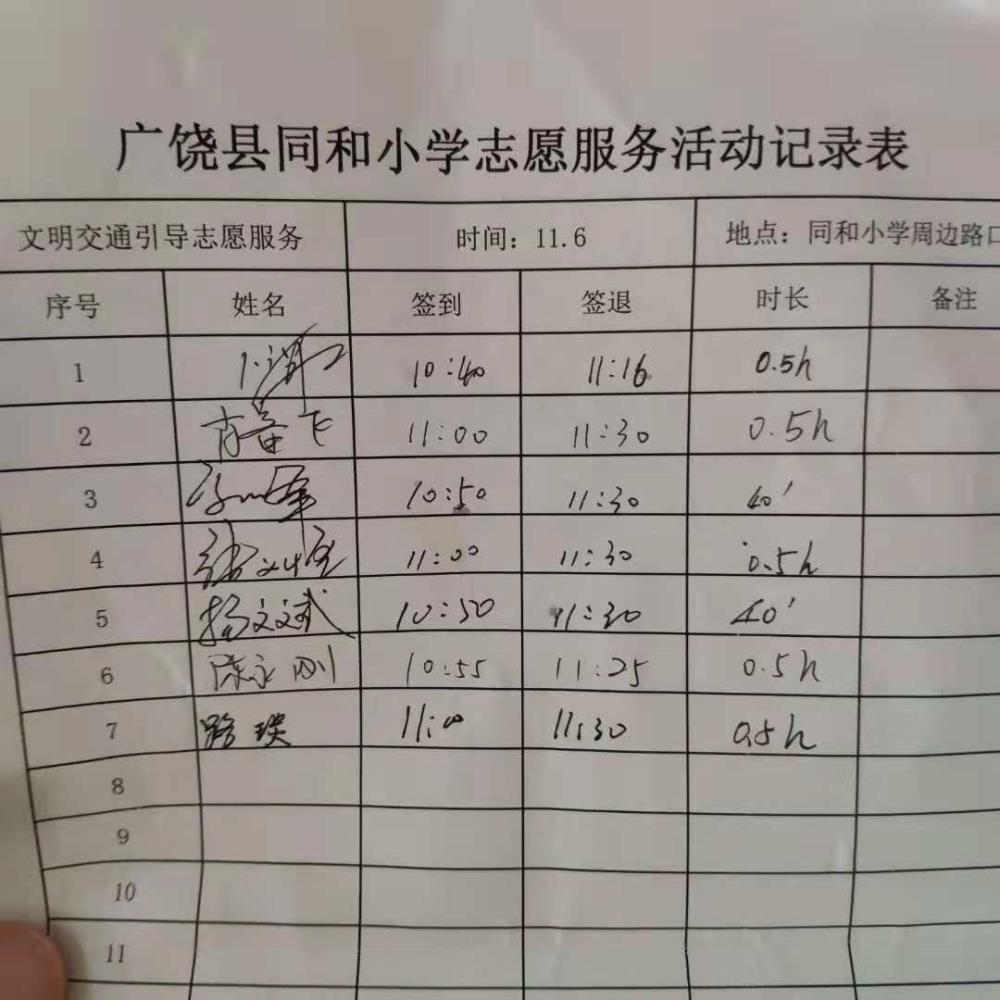 广饶县同和小学志愿服务活动记录表
文明交通引导志愿服务 时间：11.6 地点：同和小学周边路口
序号 姓名 签到 签退 时长 备注
1 10:40 11:16 0.5h
2 11:00 11:30 0.5h
3 10:50 11:30 40'
4 11:00 11:30 0.5h
5 杨文斌 10:50 11:30 40'
6 陈永刚 10:55 11:25 0.5h
7 路瑛 11:00 11:30 0.5h
8
9
10
11